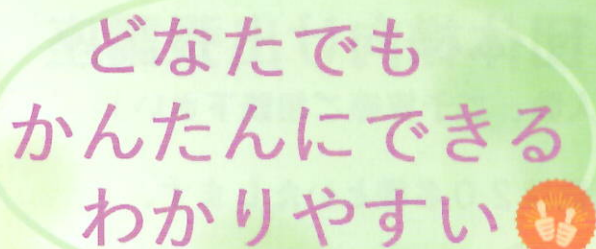 どなたでも
かんたんにできる
わかりやすい